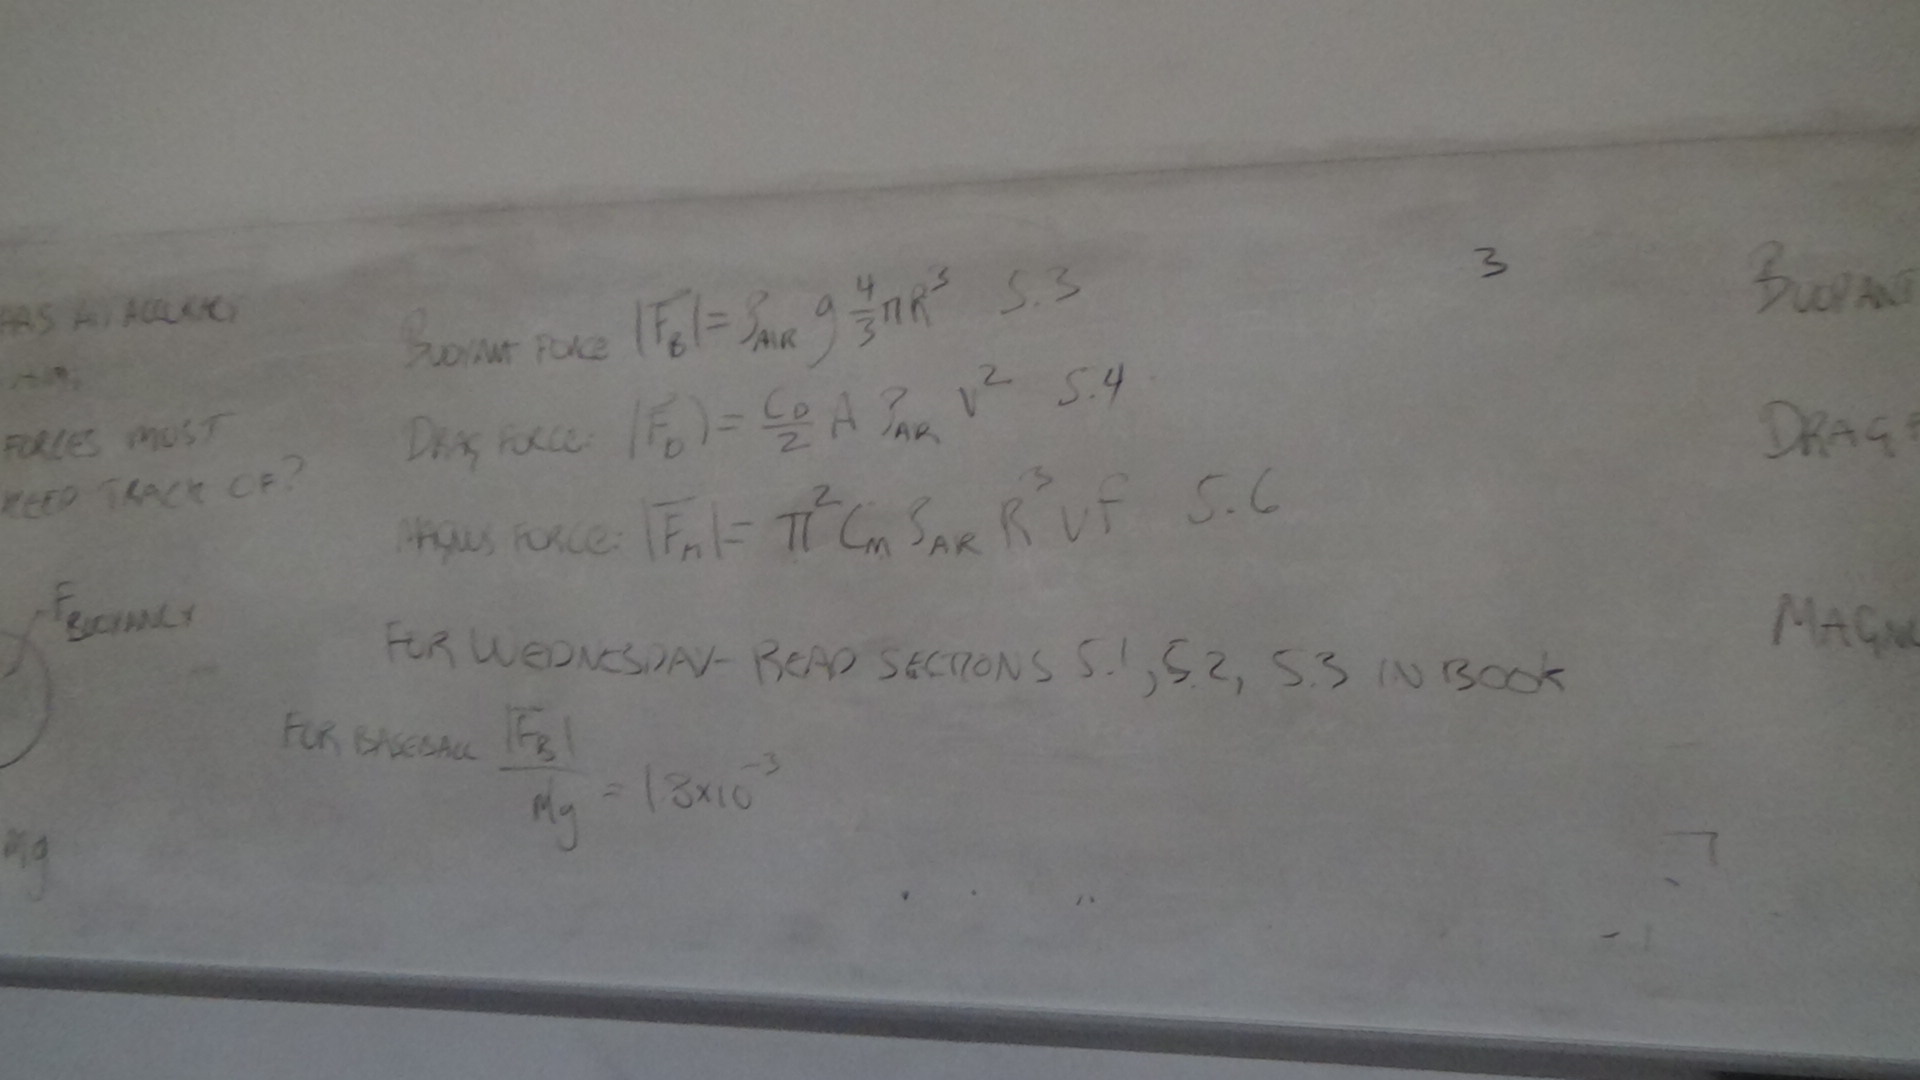 HAS
FORCES MUST
NEED TRACK OF?
F BUOYANCY
Mg
BUOYANT FORCE |F_B| = ρ_AIR g 4/3 πR³ 5.3
DRAG FORCE: |F_D| = C_D/2 A ρ_AIR V² 5.4
MAGNUS FORCE: |F_M| = π² C_M ρ_AIR R³ V f 5.6
FOR WEDNESDAY- READ SECTIONS 5.1, 5.2, 5.3 IN BOOK
FOR BASEBALL |F_B|/Mg = 18x10⁻³
3
BUOYANT
DRAG
MAGNU